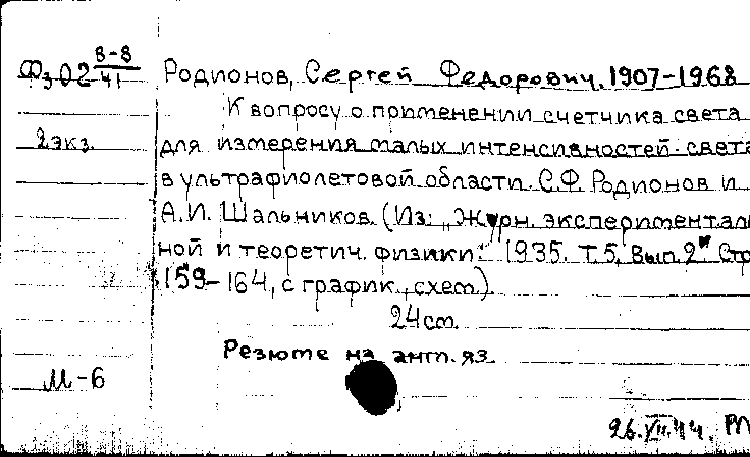 Фз02 8-8/41
Родионов, Сергей Федорович, 1907-1968
К вопросу о применении счетчика света
2 экз.
для измерения малых интенсивностей света
в ультрафиолетовой области. С.Ф. Родионов и
А.И. Шальников. (Из: „Журн. эксперименталь
ной и теоретич. физики." 1935. Т.5, вып.2" Стр
159-164, с график., схем.)
24 cm.
Резюме на англ. яз.
М-6
26.VII.44.